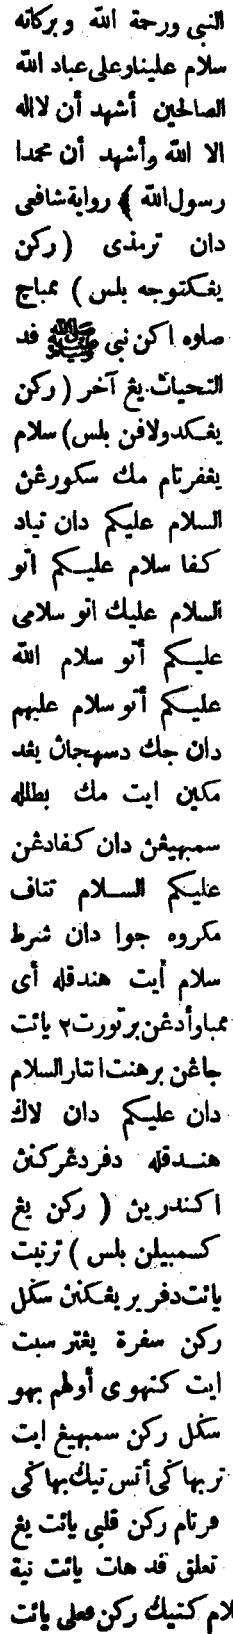 النبي ورحمة الله وبركاته
سلام علينا وعلى عباد الله
الصالحين أشهد أن لااله
الا الله وأشهد أن محمدا
رسول الله ﴾ رواية شافعى
دان ترمذى (ركن
يڠكتوجه بلس) ممباچ
صلوه اكن نبي ﷺ فد
التحيات يڠ آخر (ركن
يڠكدولافن بلس) سلام
يڠفرتام مك سكورڠن
السلام عليكم دان تياد
كفا سلام عليكم اتو
السلام عليك اتو سلامى
عليكم أتو سلام الله
عليكم أتو سلام عليهم
دان جك دسهجاڽ يڠد
مكين ايت مك بطلله
سمبهيڠن دان كفادڠن
عليكم السلام تتاف
مكروه جوا دان شرط
سلام أيت هندقله أى
ممباوأدڠن برتورت٢ يائت
جاڠن برهنت انتار السلام
دان عليكم دان لاڬ
هندقله دفردڠركنن
اكندرين (ركن يڠ
كسمبيلن بلس) ترتيب
يائت دفربريڠكنن سڬل
ركن سفرة يڠترسبت
ايت كتهوى أولهم بهو
سڬل ركن سمبهيڠ ايت
تربهاڬى أتس تيڬ بهاڬى
فرتام ركن قلبي يائت يڠ
تعلق فد هات يائت نية
كتيڬ ركن فعلى يائت